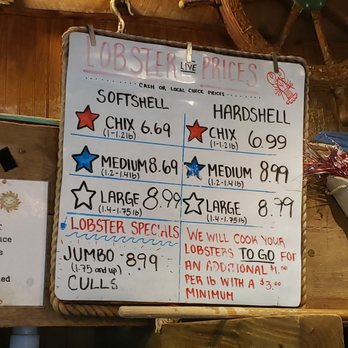 LOBSTER LIVE PRICES
CASH OR LOCAL CHECK PRICES
SOFTSHELL
CHIX 6.69
(1-1.2lb)
MEDIUM 8.69
(1.2-1.4lb)
LARGE 8.99
(1.4-1.75lb)
LOBSTER SPECIALS
JUMBO 8.99
(1.75 and up)
CULLS
HARDSHELL
CHIX 6.99
(1-1.2lb)
MEDIUM 8.99
(1.2-1.4lb)
LARGE 8.99
(1.4-1.75lb)
WE WILL COOK YOUR
LOBSTERS TO GO FOR
AN ADDITIONAL $1.00
PER lb WITH A $3.00
MINIMUM